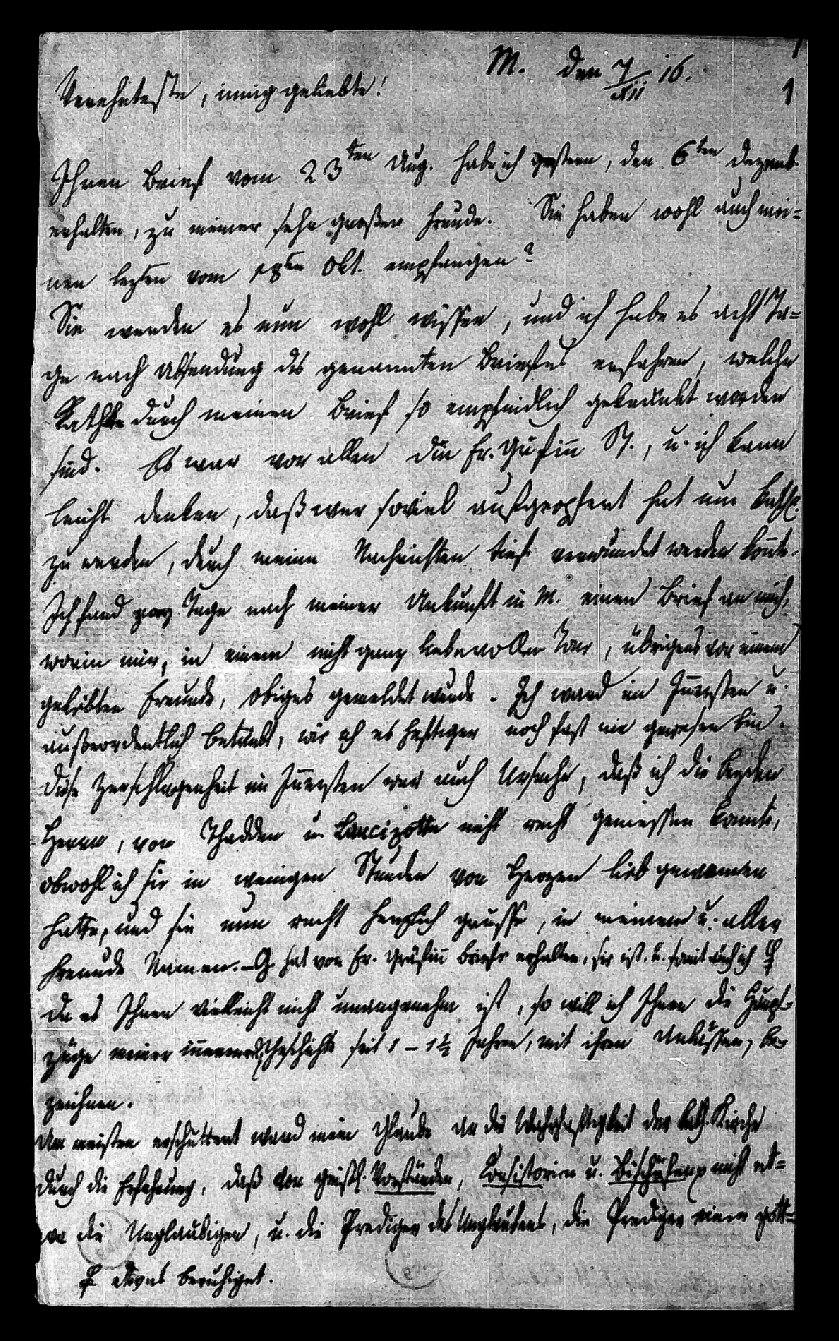 M. den 7/XII 16.
1
Verehrteste, innig geliebte!
Ihren Brief vom 23ten Aug. habe ich gestern, den 6ten Dezemb.
erhalten, zu meiner sehr großen Freude. Sie haben wohl auch mei-
nen lezten vom 18ten Okt. empfangen?
Sie werden es nun wohl wissen, und ich habe es acht Ta-
ge nach Absendung des genannten Briefes erfahren, welche
durch meinen Brief so empfindlich gekränkt worden
sind. Es war vor allen die Fr. Gräfinn St., u. ich kann
leicht denken, daß wer soviel aufgeopfert hat um kathl.
zu werden, durch meine Nachrichten tief verwundet werden konte.
Ich fand Tage nach meiner Ankunft in M. einen Brief an mich,
worin mir, in einem nicht ganz liebevollen Ton, übrigens von einem
geliebten Freunde, obiges gemeldet wurde. Ich ward im Innersten u.
außerordentlich betrübt, wie ich es heftiger noch fast nie gewesen bin.
Diese Zerschlagenheit im Innersten war auch Ursache, daß ich die beyden
Herrn, von Thadden u. Lancizolle nicht recht geniessen konnte,
obwohl ich sie in wenigen Stunden von Herzen lieb gewonnen
hatte, und sie nun recht herzlich grüsse, in meinem u. aller
Freunde Namen. – G. hat von Fr. Gräfinn Briefe erhalten, sie ist u. somit auch ich
da es Ihnen vielleicht nicht unangenehm ist, so will ich Ihnen die Haupt-
züge meiner innern Geschichte seit 1 – 1½ Jahren, mit ihren Anlässen, be-
zeichnen.
Am meisten erschüttert ward mein Glaube an die Wahrhaftigkeit der kath. Kirche
durch die Erfahrung, daß von geistl. Vorständen, Consistorien u. Bischöfen nicht et-
wa die Unglaubigen, u. die Prediger des Unglaubens, die Prediger einer gott-
etwas beruhiget.